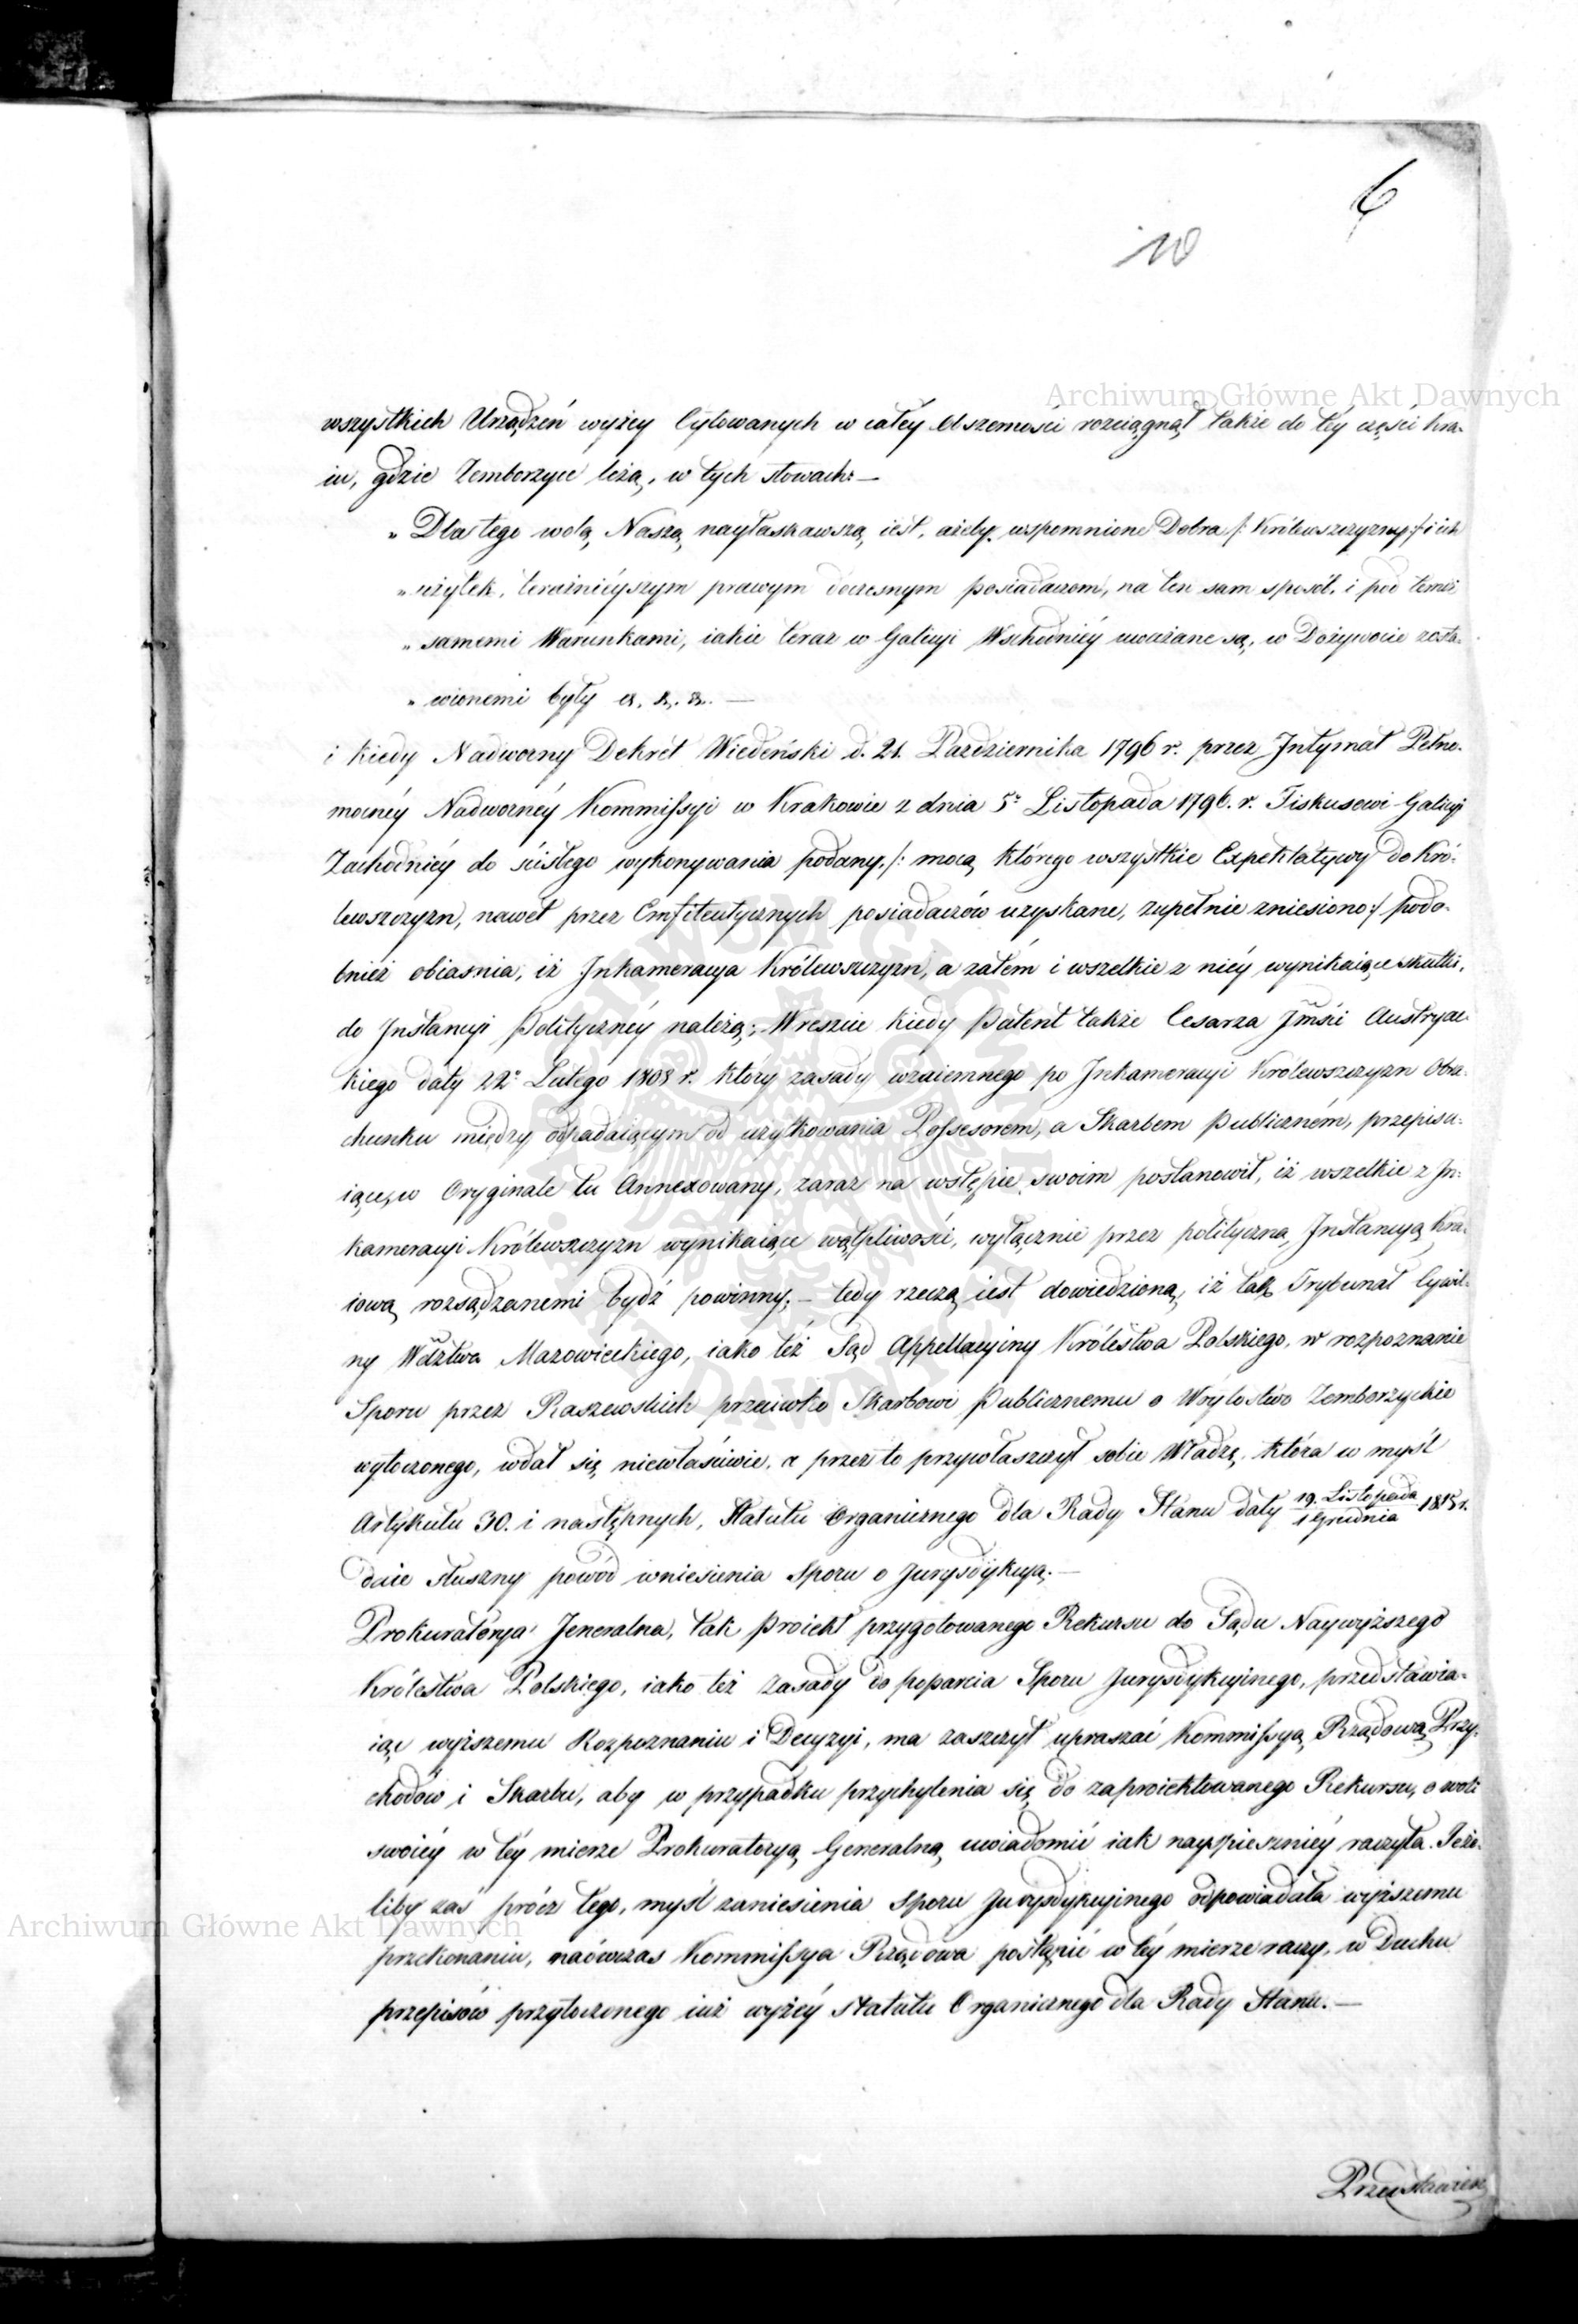 6
10
Archiwum Główne Akt Dawnych
wszystkich Urządzeń wyżey Cytowanych w całey obszerności rozciągnął także do téy części kra-
iu, gdzie Zemborzyce leżą, w tych słowach: —
„ Dla tego wolą Naszą nayłaskawszą iest, ażeby wspomnione Dobra /: Królewszczyzny :/ i ich
„ użytek, teraźnieyszym prawym doczesnym posiadaczom, na ten sam sposób, i pod temiż
„ samemi Warunkami, iakie teraz w Galicyi Wschodniéy uważane są, w Dożywocie zosta-
„ wionemi były —
i kiedy Nadworny Dekrét Wiedeński d. 21. Października 1796 r. przez Intymat Pełno-
mocnéy Nadwornéy Kommissyi w Krakowie z dnia 5º Listopada 1796. r. Fiskusowi Galicyi
Zachodniéy do ścisłego wykonywania podany, /: mocą którego wszystkie Expektatywy do Kró-
lewszczyzn, nawet przez Emfiteutycznych posiadaczów uzyskane, zupełnie zniesiono :/ podo-
bnież obiaśnia, iż Inkameracya Królewszczyzn, a zatém i wszelkie z niéy wynikaiące skutki,
do Instancyi Politycznéy należą; Wreszcie kiedy Patent także Cesarza Jmści Austryac-
kiego daty 22º Lutego 1808 r. który zasady wzaiemnego po Inkameracyi Królewszczyzn Obra-
chunku między odpadaiącym od użytkowania Possesorem, a Skarbem Publiczném, przepisu-
iące, w Oryginale tu Annexowany, zaraz na wstępie swoim postanowił, iż wszelkie z In-
kameracyi Królewszczyzn wynikaiące wątpliwości, wyłącznie przez polityczną Instancyą Kra-
iową rozsądzanemi bydź powinny; — tedy rzeczą iest dowiedzioną, iż tak Trybunał Cywil-
ny Wdztwa Mazowieckiego, iako też Sąd Appellacyiny Królestwa Polskiego, w rozpoznanie
Sporu przez Raszewskich przeciwko Skarbowi Publicznemu o Wóytostwo Zemborzyckie
wytoczonego, wdał się niewłaściwie, a przez to przywłaszczył sobie Władzę, która w myśl
Artykułu 30. i następnych, Statutu Organicznego dla Rady Stanu daty 19. Listopada / 1 Grudnia 1815 r.
daie słuszny powód wniesienia Sporu o Jurysdykcyą. —
Prokuratorya Jeneralna, tak Proiekt przygotowanego Rekursu do Sądu Naywyższego
Królestwa Polskiego, iako też zasady do poparcia Sporu Jurysdykcyinego, przedstawia-
iąc wyższemu Rozpoznaniu i Decyzyi, ma zaszczyt upraszać Kommissyą Rządową Przy-
chodów i Skarbu, aby w przypadku przychylenia się do zaproiektowanego Rekursu, o woli
swoiéy w téy mierze Prokuratoryą Generalną uwiadomić iak nayspieszniéy raczyła. Jeże-
liby zaś prócz tego, myśl zaniesienia Sporu Jurysdykcyinego odpowiadała wyższemu
przekonaniu, naówczas Kommissya Rządowa postąpić w téy mierze raczy, w Duchu
przepisów przytoczonego iuż wyżéy Statutu Organicznego dla Rady Stanu. —
Archiwum Główne Akt Dawnych